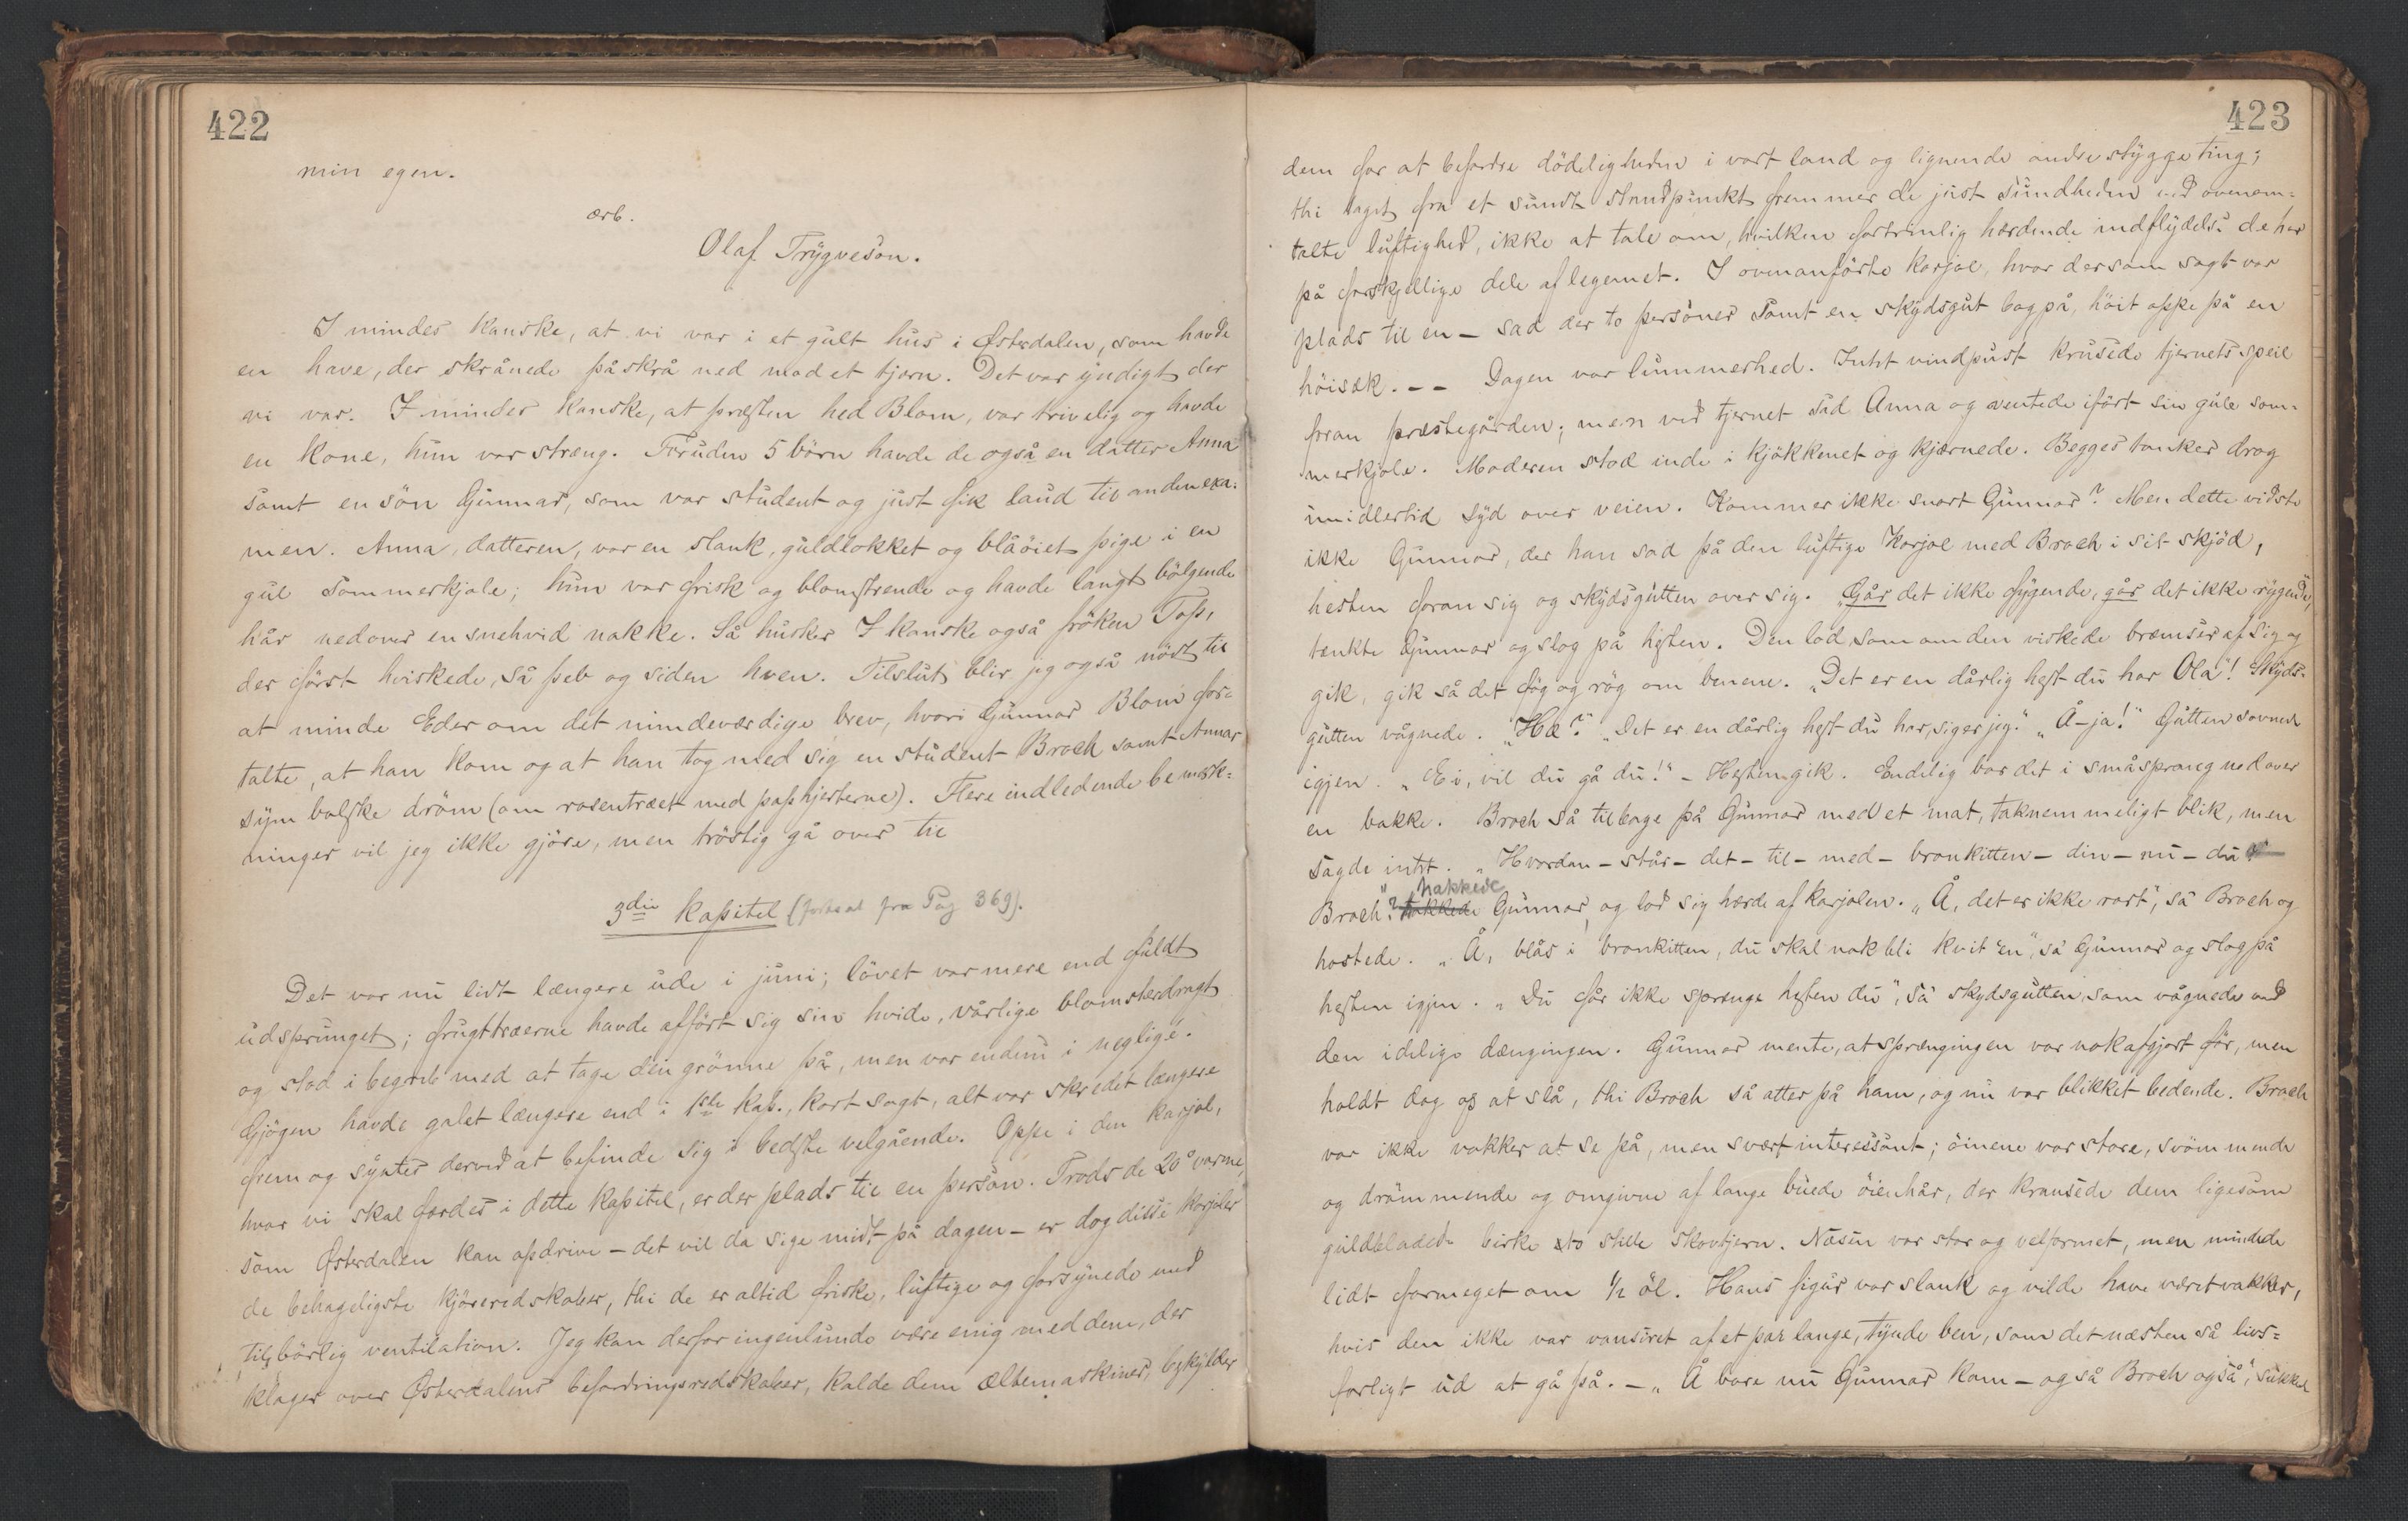 422
min egen.
ærb.
Olaf Trÿgveson.
I mindes kanske, at vi var i et gult hus i Østerdalen, som havde
en have, der skrånede på skrå ned mod et tjern. Det var ÿndigt der
vi var. I mindes kanske, at præsten hed Blom, var trivelig og havde
en kone, hun var stræng. Foruden 5 børn havde de også en datter Anna
samt en søn Gunnar, som var student og just fik laud til anden exa-
men. Anna, datteren, var en slank, guldlokket og blåøiet pige i en
gul sommerkjole; hun var frisk og blomstrende og havde langt bølgende
hår nedover en snehvid nakke. Så husker I kanske også frøken Tofs,
der først hviskede, så peb og siden hven. Tilslut blir jeg også nødt til
at minde Eder om det mindeværdige brev, hvori Gunnar Blom for-
talte, at han kom og at han tog med sig en student Broch samt Annas
sÿmbolske drøm (om rosentræet med pæshjerterne). Flere indledende bemærk-
ninger vil jeg ikke gjøre, men trøstig gå over til
3die kapitel (fortsat fra Pag 369).
Det var nu lidt længere ude i juni; løvet var mere end fuldt
udsprunget; frugttræerne havde afført sig sin hvide, vårlige blomsterdragt
og stod i begreb med at tage den grønne på, men var endnu i negligé.
Gjøgen havde galet længere end i 1ste kap., kort sagt, alt var skredet længere
frem og sÿntes derved at befinde sig i bedste velgående. Oppe i den karjol,
hvor vi skal færdes i dette kapitel, er der plads til en person. Trods de 20° varme,
som Østerdalen kan opdrive – det vil da sige midt på dagen – er dog disse karjoler
de behageligste kjøreredskaber, thi de er altid friske, luftige og forsÿnede med
tilbørlig ventilation. Jeg kan derfor ingenlunde være enig med dem, der
klager over Østerdalens befordringsredskaber, kalde dem æltemaskiner, beskÿlder
423
dem for at befordre dødeligheden i vort land og lignende andre stÿgge ting;
thi taget fra et sundt standpunkt fremmer de just sundheden ved ovenom-
talte luftighed, ikke at tale om, hvilken fortrinlig hærdende indflÿdelse de har
på forskjellige dele af legemet. I ovenanførte karjol, hvor der som sagt var
plads til en – sad der to personer samt en skÿdsgut bagpå, høit oppe på en
høisæk. – – Dagen var lummerhed. Intet vindpust krusede tjernets speil
foran præstegården; men ved tjernet sad Anna og ventede iført sin gule som-
merkjole. Moderen stod inde i kjøkkenet og kjærnede. Begges tanker drog
imidlertid sÿd over veien. Kommer ikke snart Gunnar? Men dette vidste
ikke Gunnar, der han sad på den luftige karjol med Broch i sit skjød,
hesten foran sig og skÿdsgutten over sig. „Går det ikke fÿgende, går det ikke rÿgende,
tænkte Gunnar og slog på hesten. Den lod, som om den viskede bræmser af sig og
gik, gik så det føg og røg om benene. „Det er en dårlig hest du har Ola"! Skÿds-
gutten vågnede. „Hæ?" „Det er en dårlig hest du har, siger jeg." „Å-ja!" Gutten sovnede
igjen. „Ei, vil du gå du!" – Hesten gik. Endelig bar det i småsprang nedover
en bakke. Broch så tilbage på Gunnar med et mat, taknemmeligt blik, men
sagde intet. „Hvordan – står – det – til – med – bronkitten – din – nu – du
Broch"? hakkede Gunnar, og lod sig hærde af karjolen. „Å, det er ikke rart", sa Broch og
hostede. „Å, blås i bronkitten, du skal nok bli kvit 'en", sa Gunnar og slog på
hesten igjen. „Du får ikke sprænge hesten du", sa skydsgutten, som vågnede ved
den idelige dængingen. Gunnar mente, at sprængingen var nok afgjort før, men
holdt dog op at slå, thi Broch så atter på ham, og nu var blikket bedende. Broch
var ikke vakker at se på, men svært interessant; øinene var store, svømmende
og drømmende og omgivne af lange buede øienhår, der kransede dem ligesom
guldbladede birke to stille skovtjern. Næsen var stor og velformet, men mindede
lidt formeget om ½ øl. Hans figur var slank og vilde have været vakker,
hvis den ikke var vansiret af et par lange, tÿnde ben, som det næsten så livs-
farligt ud at gå på. – „Å bare nu Gunnar kom – og så Broch også", sukked